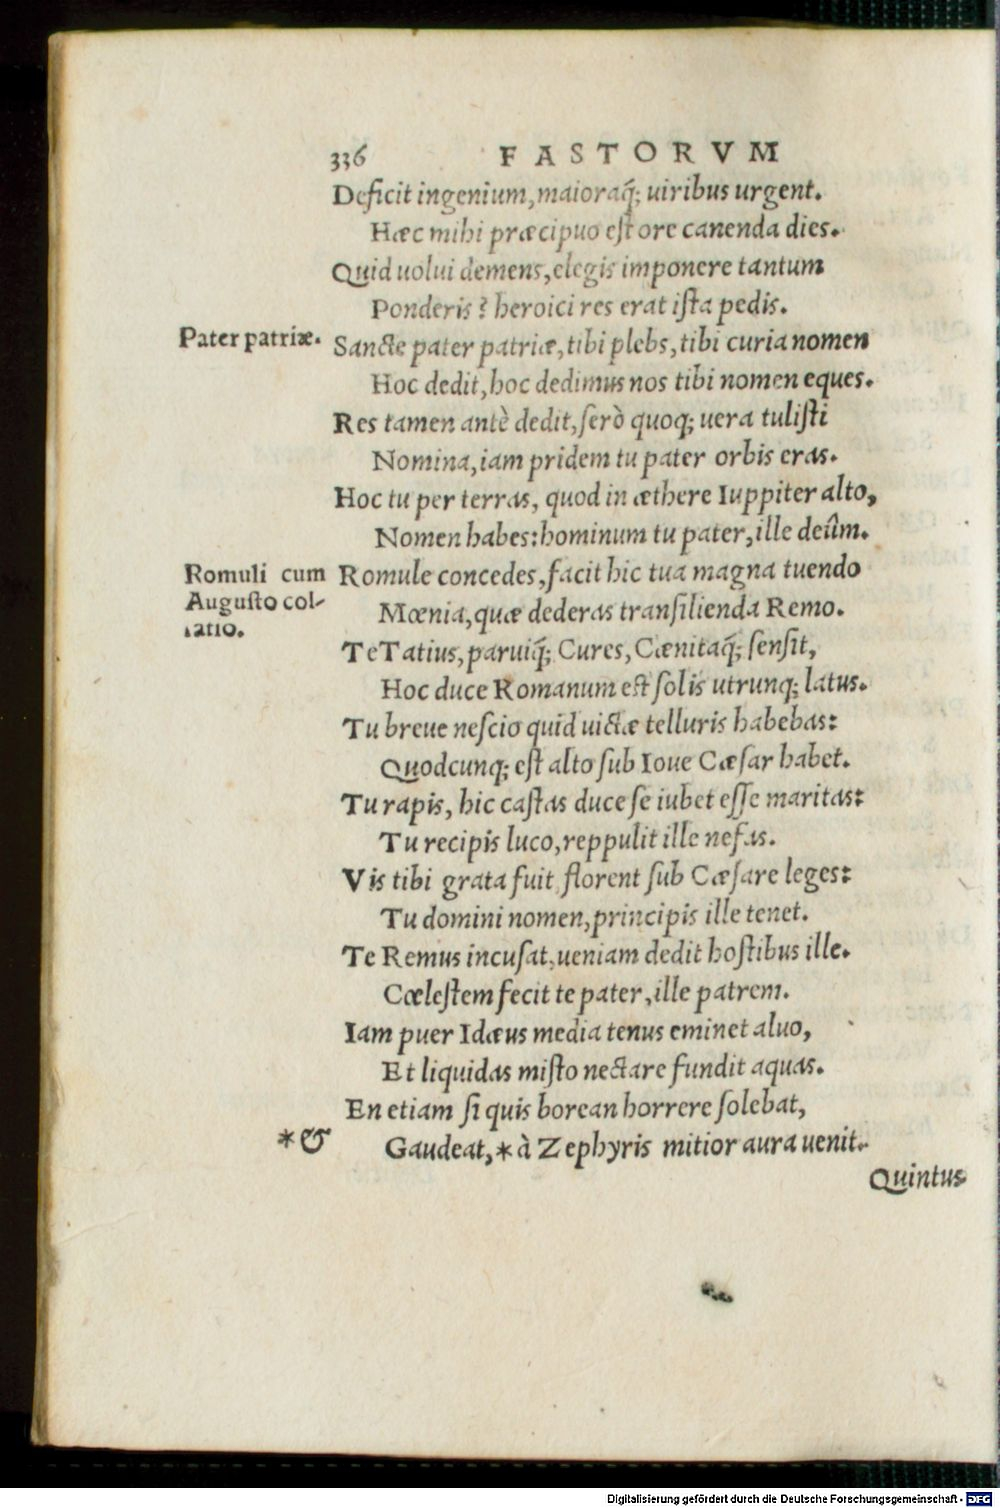 336 FASTORVM
Deficit ingenium, maioraq́; uiribus urgent.
Hæc mihi præcipuo est ore canenda dies.
Quid uolui demens, elegis imponere tantum
Ponderis? heroici res erat ista pedis.
Pater patriæ. Sancte pater patriæ, tibi plebs, tibi curia nomen
Hoc dedit, hoc dedimus nos tibi nomen eques.
Res tamen antè dedit, serò quoq; uera tulisti
Nomina, iam pridem tu pater orbis eras.
Hoc tu per terras, quod in æthere Iuppiter alto,
Nomen habes: hominum tu pater, ille deûm.
Romuli cum Romule concedes, facit hic tua magna tuendo
Augusto col-
Mœnia, quæ dederas transilienda Remo.
latio.
Te Tatius, paruiq́; Cures, Cænitaq́; sensit,
Hoc duce Romanum est solis utrunq; latus.
Tu breue nescio quid uictæ telluris habebas:
Quodcunq; est alto sub Ioue Cæsar habet.
Tu rapis, hic castas duce se iubet esse maritas:
Tu recipis luco, reppulit ille nefas.
Vis tibi grata fuit, florent sub Cæsare leges:
Tu domini nomen, principis ille tenet.
Te Remus incusat, ueniam dedit hostibus ille.
Cœlestem fecit te pater, ille patrem.
Iam puer Idæus media tenus eminet aluo,
Et liquidas misto nectare fundit aquas.
En etiam si quis borean horrere solebat,
*& Gaudeat, * à Zephyris mitior aura uenit.
Quintus
Digitalisierung gefördert durch die Deutsche Forschungsgemeinschaft - DFG